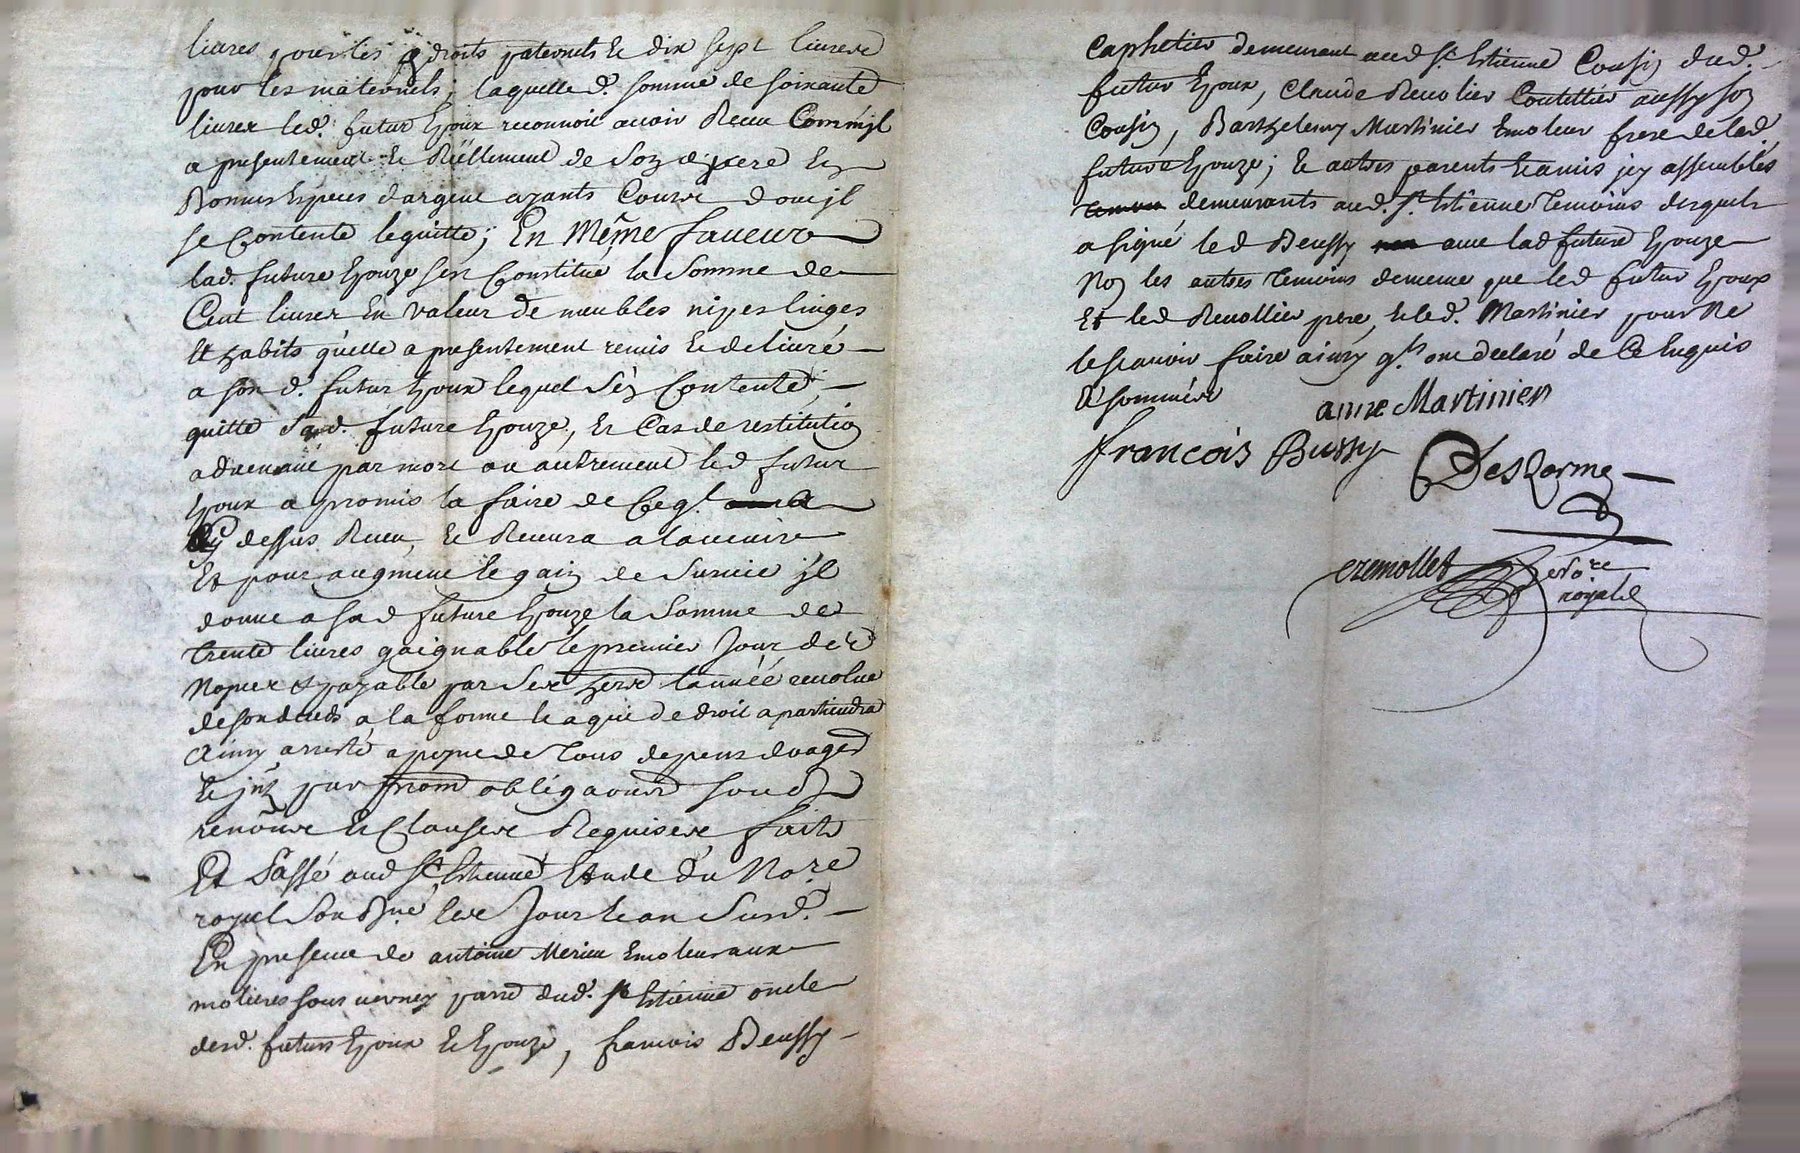 livres pour les droits paternels et dix sept livres
pour les maternels; laquelle d. somme de soixante
livres led. futur Epoux reconnoit avoir Receu Comm'jl
a presentement Et Réellement de Son d. pere En
Bonnes Especes d'argent ayants Cours dont jl
se Contente le quitte; En Même faveur
lad. future Epouze s'est Constitué la Somme de
Cent livres En valeur de meubles nipes linges
Et habits qu'elle a presentement remis Et delivré
a son d. futur Epoux lequel S'en Contente,
quitte Sad. future Epouze, En Cas de restitution
advenant par mort ou autrement led futur
Epoux a promis la faire de Ce q'l
Cy dessus Receu, Et Recevra a lavenir
Et pour augment le gain de Survie jl
donne a sad future Epouze la Somme de
trente livres gaignable le premier Jour des
Nopces Et payable par Ses hers lannéé revolue
de son deceds a la forme Et a qui de droit apartiendra
Ainsy arresté a peyne de tous depens domages
Et jnt par prom obligaons soud
renons Et Clauses Requises, faits
Et Passé aud St. Estienne Etude du Nore
royal Sousné les Jour Et an Susd.
En presence de antoine Merieu Emoleur aux
molieres sous verney parre dud. St Estienne oncle
desd. futurs Epoux Et Epouze, francois Beussy
Caphetier demeurant aud St. Estienne Cousin dud.
futur Epoux, Claude Revolier Coutellier aussy son
Cousin, Barthelemy Martinier Emoleur frere de lad.
future Epouze; Et autres parents Et amis jcy assemblés
demeurants aud. St. Estienne temoins desquels
a signé led Beussy avec lad future Epouze
Non les autres temoins de meme que led futur Epoux
Et led Revollier pere, Et led. Martinier pour Ne
le scavoir faire ainsy q'ls ont declaré de Ce Enquis
Et sommés
anne Martinier
francois Bussy
Deslorme
cremollet Nore
royal